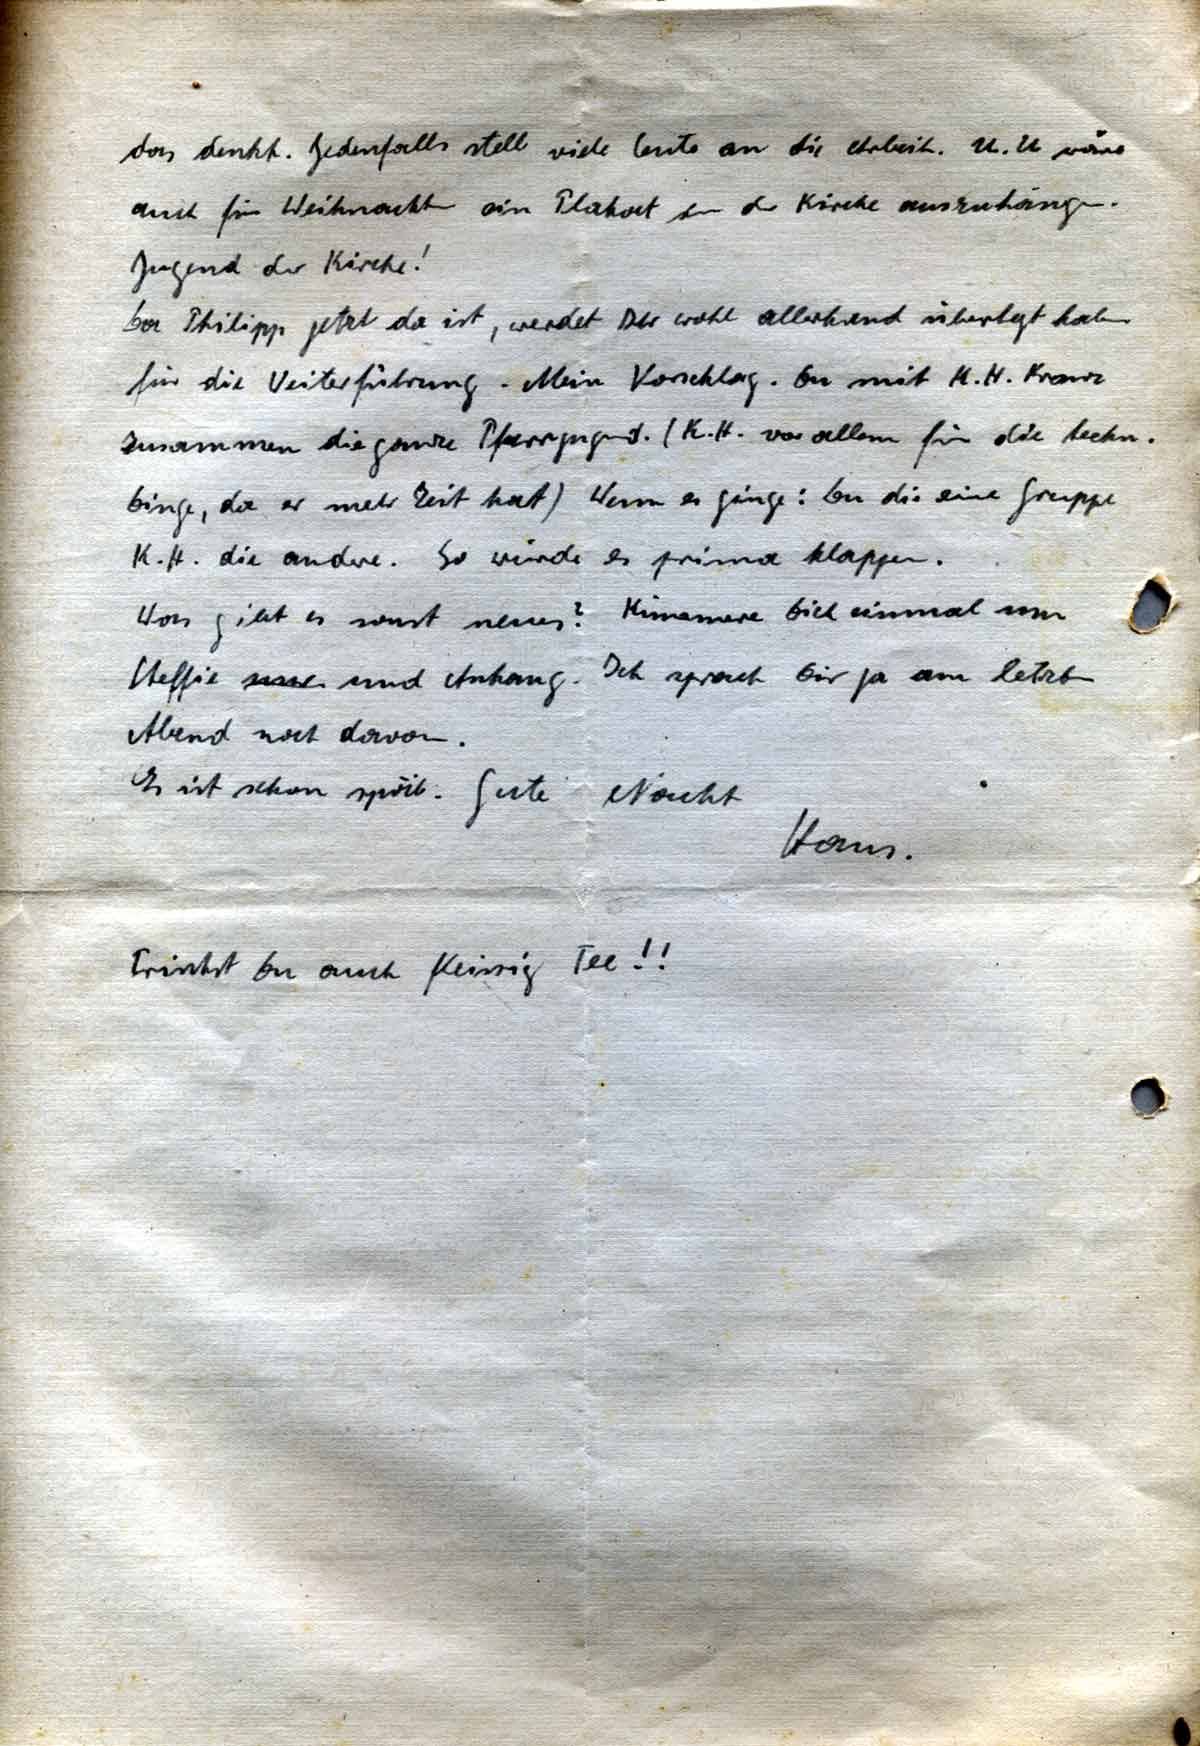 das denkt. Jedenfalls stell viele Leute an die Arbeit. U. U wäre
auch für Weihnachten ein Plakat in der Kirche auszuhängen.
Jugend der Kirche!
Da Philipp jetzt da ist, werdet Ihr wohl allerhand überlegt haben
für die Weiterführung. Mein Vorschlag. Du mit K. H. Kranz
zusammen die ganze Pfarrjugend. (K. H. vor allem für die techn.
Dinge, da er mehr Zeit hat) Wenn es ginge: Du die eine Gruppe
K. H. die andere. So würde es prima klappen.
Was gibt es sonst neues? Kümmere Dich einmal um
Steffie und Anhang. Ich sprach Dir ja am letzten
Abend noch davon.
Es ist schon spät. Gute Nacht
Hans.
Trinkst Du auch fleissig Tee!!